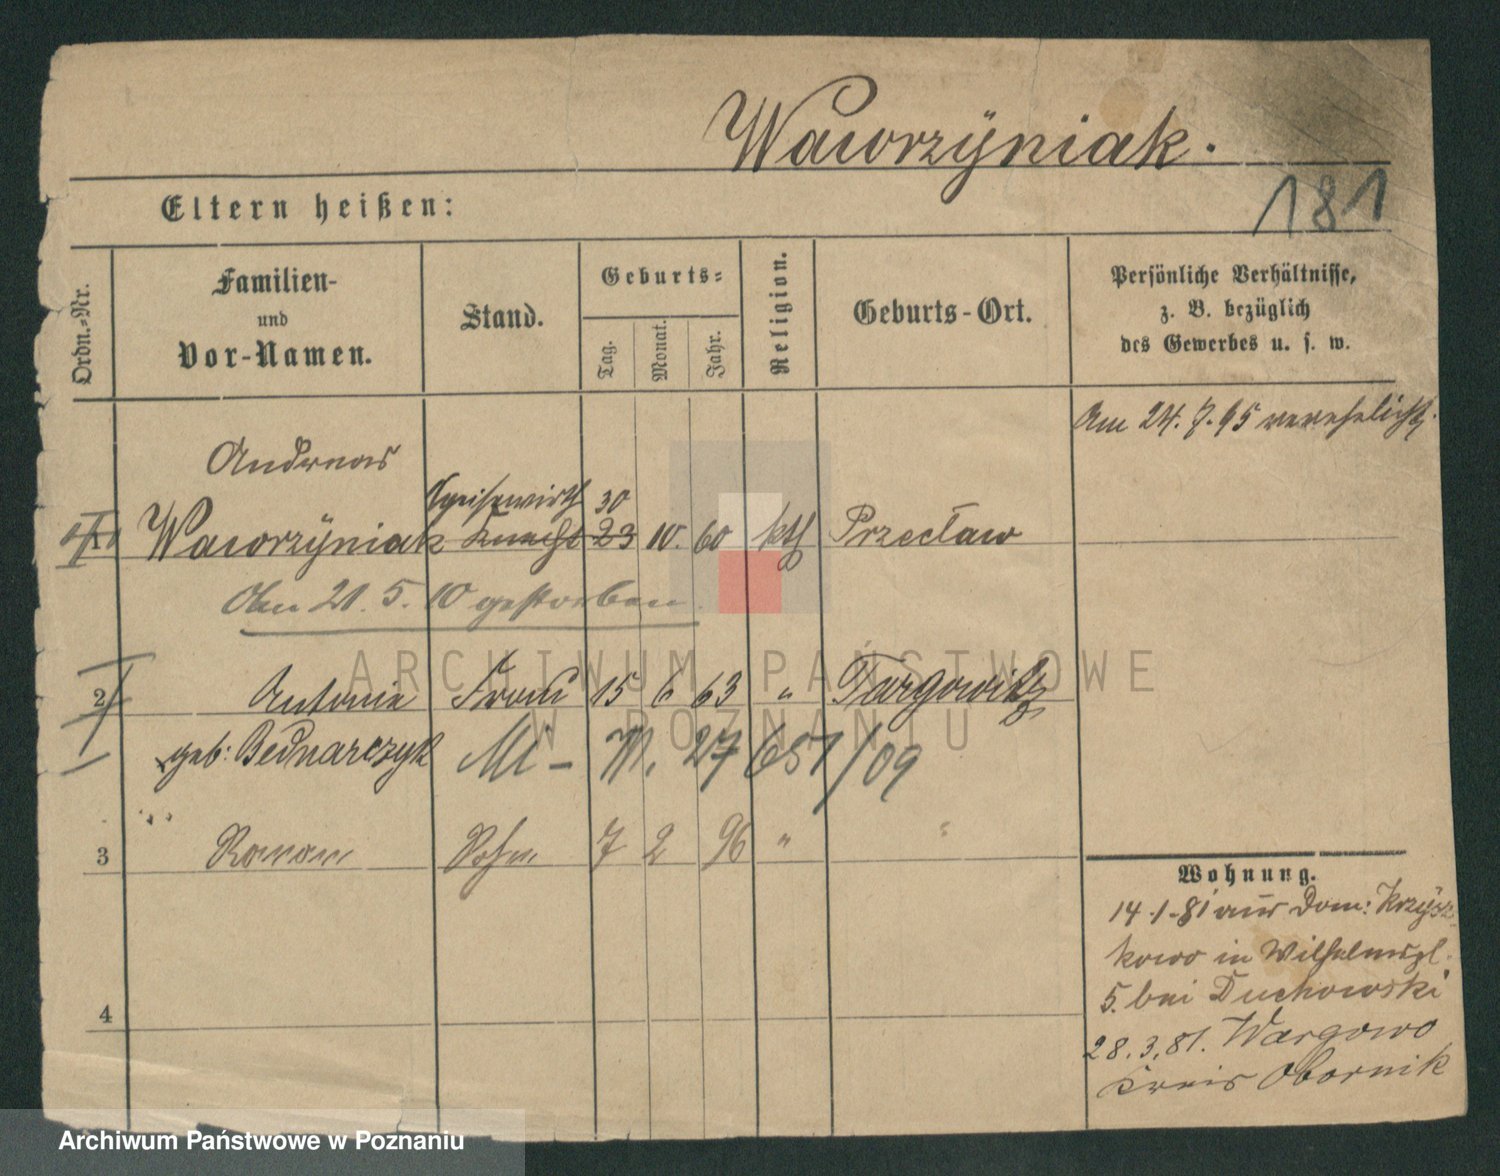 Wawrzÿniak.
181
Eltern heißen:
Ordn.-Nr.
Familien-
und
Vor-Namen.
Stand.
Geburts-
Tag.
Monat.
Jahr.
Religion.
Geburts-Ort.
Persönliche Verhältnisse,
z. B. bezüglich
des Gewerbes u. s. w.
Am 24. 7. 95 verehelicht.
Andreas
Speisewirth 30
1 Wawrzÿniak Knecht 23 10. 60 kth Przecław
Am 21. 5. 10 gestorben
2 Antonie Frau 15 6 63 " Targowitz
geb: Bednarczyk Mi- M. 217 651/09
3 Roman Sohn 7 2 96 "
4
Wohnung.
14.1.81 aus Dom: Krzÿsz-
kowo in Wilhelmspl.
5. bei Duchowski
28.3.81. Wargowo
Kreis Obornik
ARCHIWUM PAŃSTWOWE
W POZNANIU
Archiwum Państwowe w Poznaniu